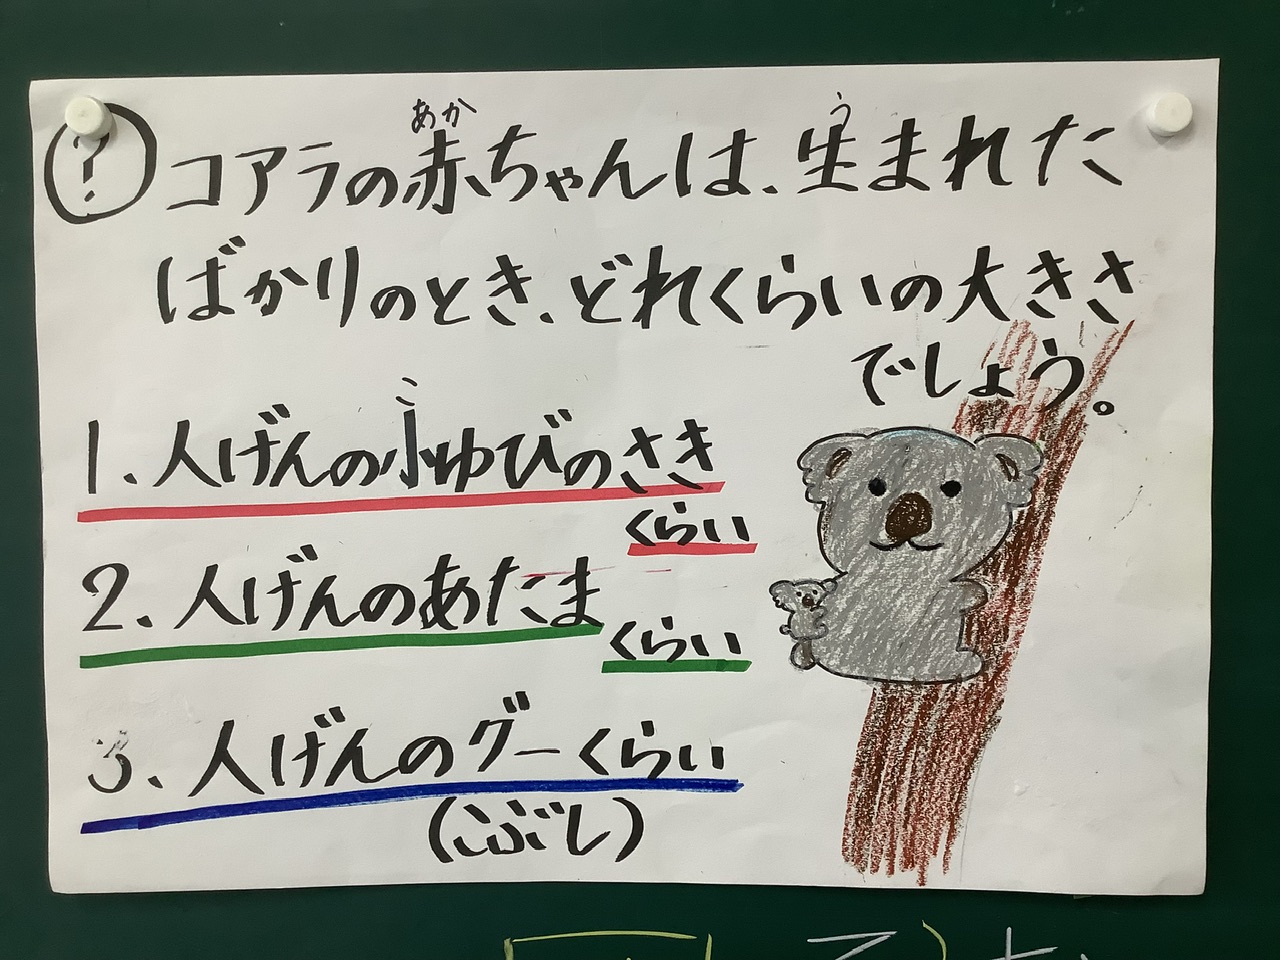 ? コアラの赤ちゃんは、生まれた
あか
う
ばかりのとき、どれくらいの大きさ
でしょう。
1. 人げんの小ゆびのさき
こ
くらい
2. 人げんのあたま
くらい
3. 人げんのグーくらい
(こぶし)